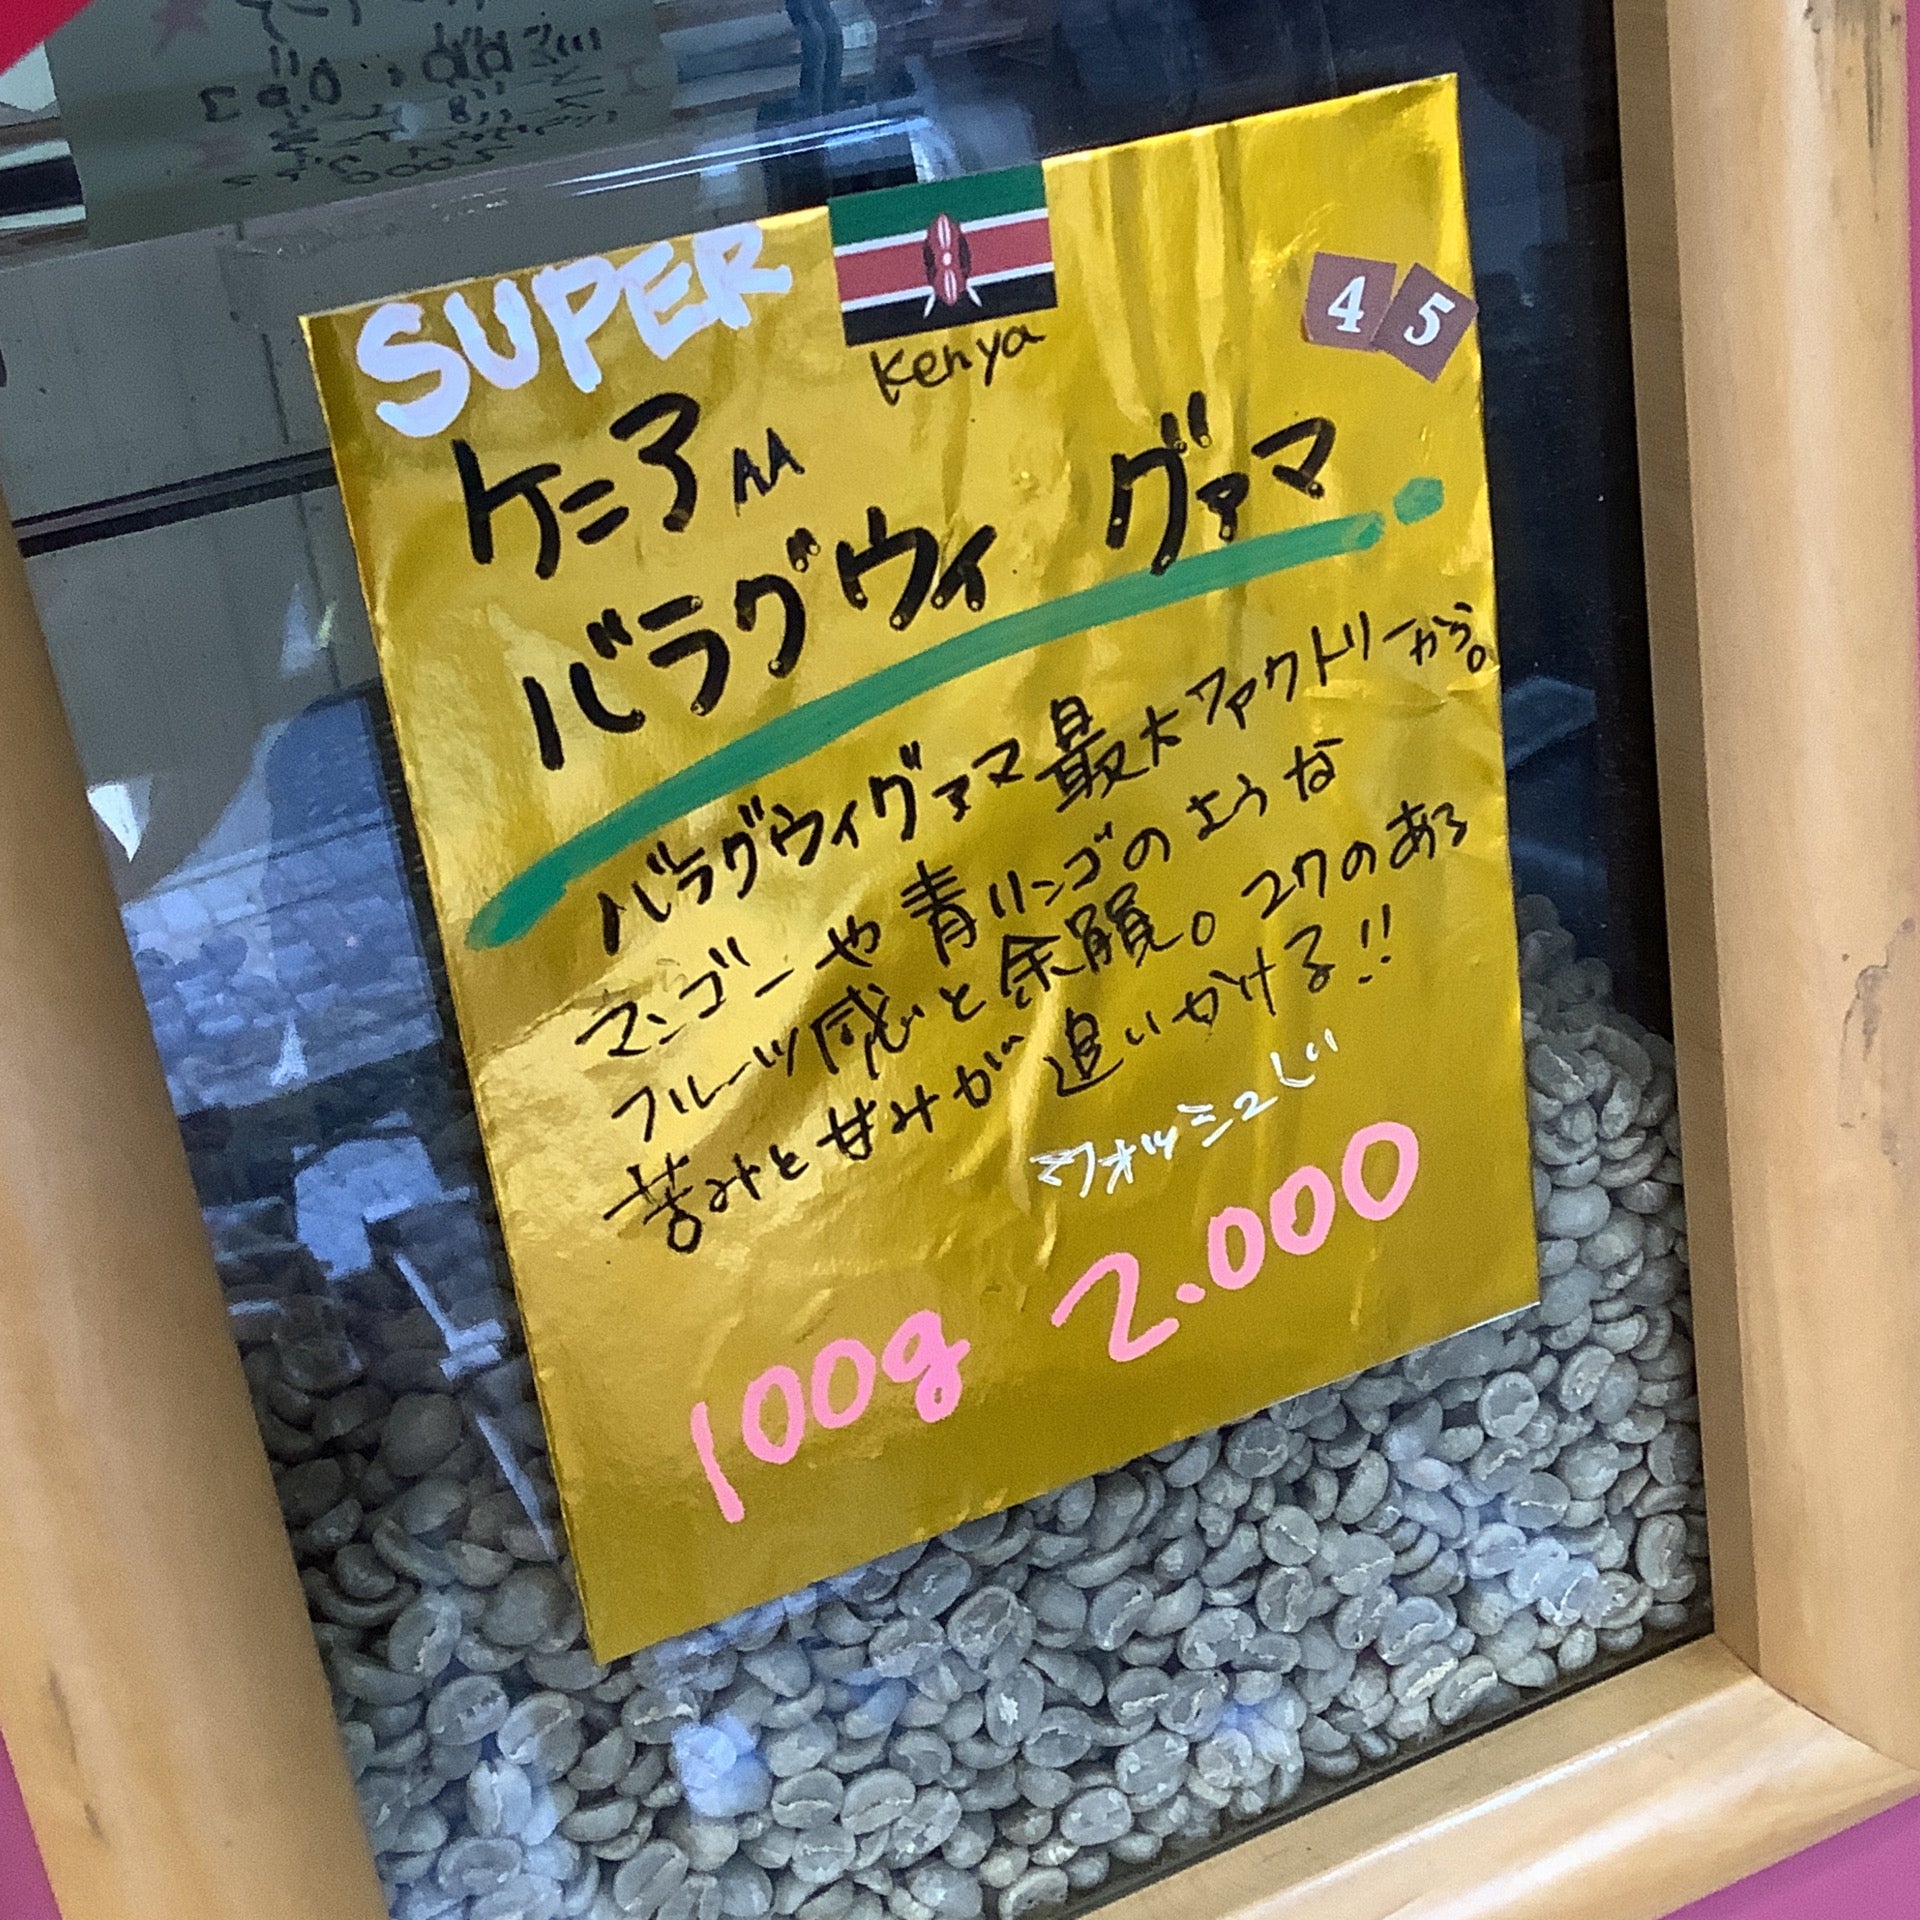 SUPER
Kenya
4 5
ケニア AA
バラグウィ グァマ
バラグウィグァマ最大ファクトリーから。
マンゴーや青リンゴのような
フルーツ感と余韻。コクのある
苦みと甘みが追いかける!!
ウォッシュしい
100g 2.000